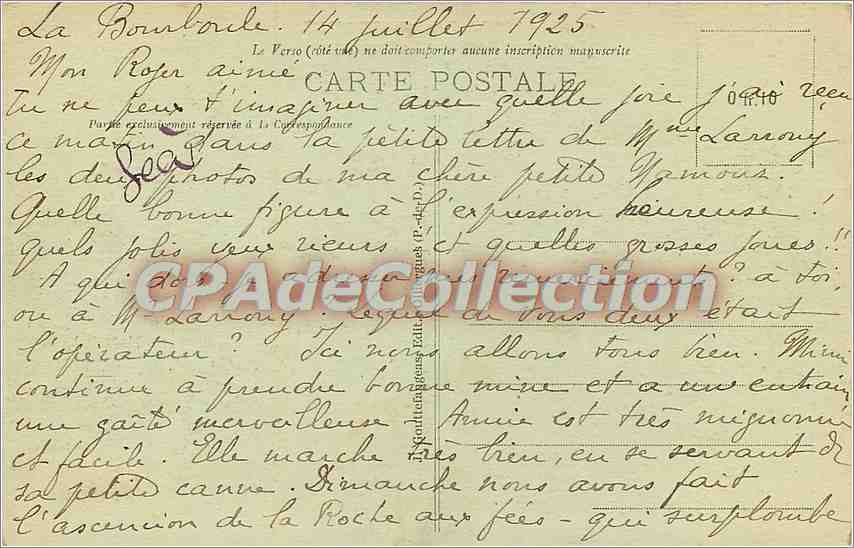 La Bourboule. 14 juillet 1925
Le Verso (côté vue) ne doit comporter aucune inscription manuscrite
Mon Roger aimé
CARTE POSTALE
Tu ne peux t'imaginer avec quelle joie j'ai reçu
0 fr. 10
Partie exclusivement réservée à la Correspondance
ce matin dans la petite lettre de Mme Larrouy
les deux photos de ma chère petite Namouz.
Quelle bonne figure à l'expression heureuse !
quels jolis yeux rieurs et quelles grosses joues !!
A qui dois-je adresser mes remerciements ? à toi,
CPAdeCollection
ou à M. Larrouy ? Lequel de vous deux était
l'opérateur ? Ici nous allons tous bien. Mimi
continue à prendre bonne mine et a un entrain
une gaîté merveilleuse - Annie est très mignonne
et facile. Elle marche très bien, en se servant de
sa petite canne. Dimanche nous avons fait
l'ascencion de la Roche aux fées - qui surplombe
J. Gouttefangeas, Edit., Olliergues (P.-de-D.)